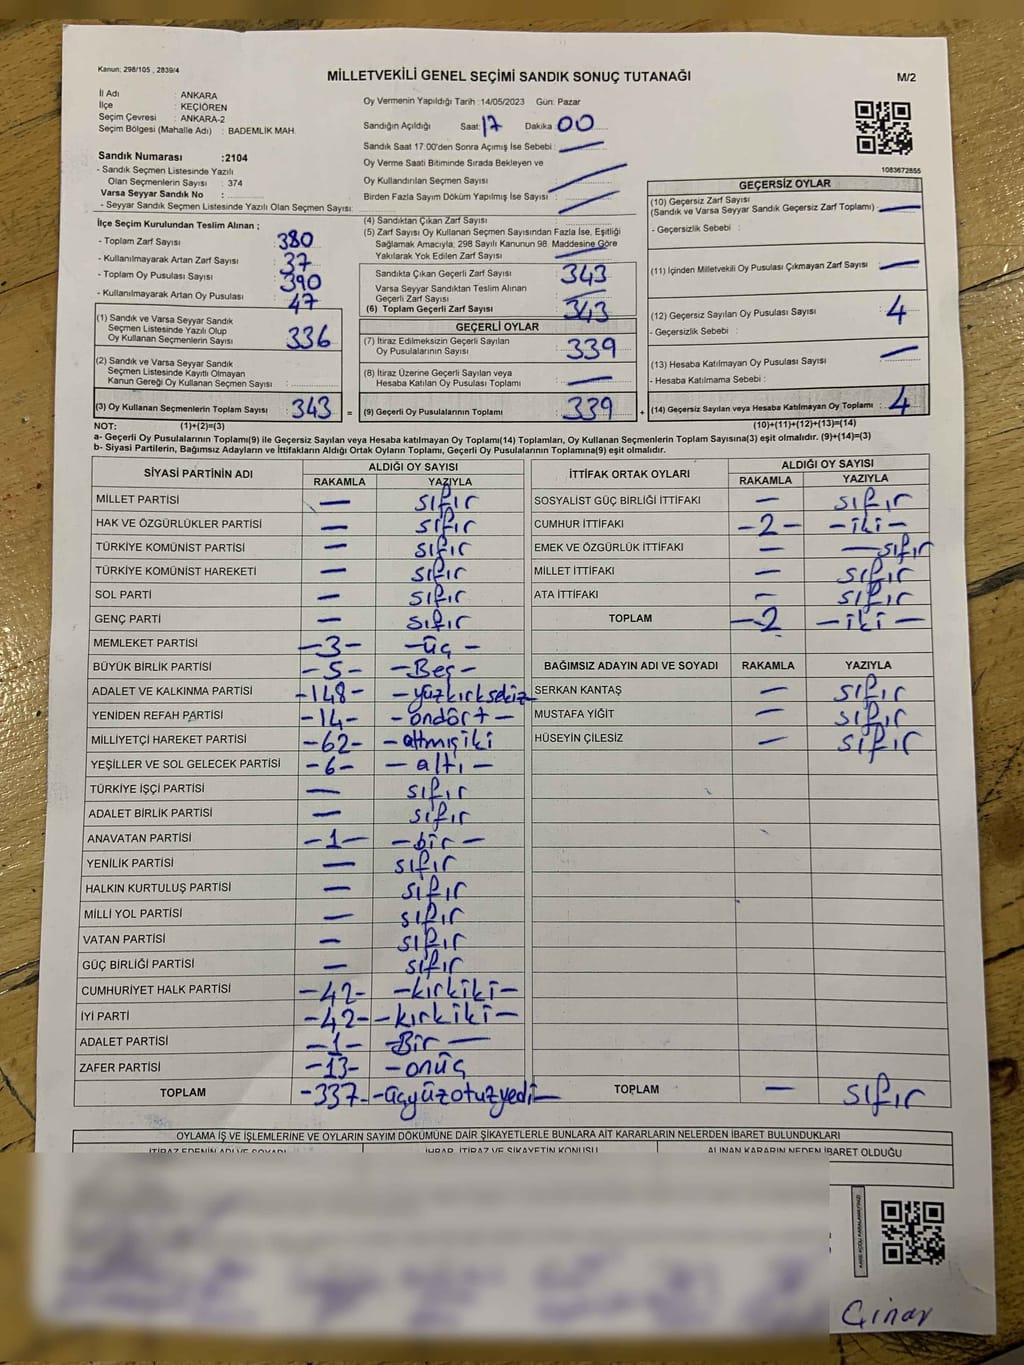 Kanun: 298/105 , 2839/4
MİLLETVEKİLİ GENEL SEÇİMİ SANDIK SONUÇ TUTANAĞI
M/2
İl Adı : ANKARA
İlçe : KEÇİÖREN
Seçim Çevresi : ANKARA-2
Seçim Bölgesi (Mahalle Adı) : BADEMLİK MAH.
Sandık Numarası :2104
- Sandık Seçmen Listesinde Yazılı
Olan Seçmenlerin Sayısı : 374
Varsa Seyyar Sandık No :
- Seyyar Sandık Seçmen Listesinde Yazılı Olan Seçmen Sayısı:
Oy Vermenin Yapıldığı Tarih :14/05/2023 Gün: Pazar
Sandığın Açıldığı Saat: 17 Dakika 00
Sandık Saat 17:00'den Sonra Açımış İse Sebebi : —
Oy Verme Saati Bitiminde Sırada Bekleyen ve
Oy Kullandırılan Seçmen Sayısı —
Birden Fazla Sayım Döküm Yapılmış İse Sayısı : —
1083672855
İlçe Seçim Kurulundan Teslim Alınan ;
- Toplam Zarf Sayısı : 380
- Kullanılmayarak Artan Zarf Sayısı : 37
- Toplam Oy Pusulası Sayısı : 390
- Kullanılmayarak Artan Oy Pusulası : 47
(1) Sandık ve Varsa Seyyar Sandık
Seçmen Listesinde Yazılı Olup
Oy Kullanan Seçmenlerin Sayısı : 336
(2) Sandık ve Varsa Seyyar Sandık
Seçmen Listesinde Kayıtlı Olmayan
Kanun Gereği Oy Kullanan Seçmen Sayısı :
(3) Oy Kullanan Seçmenlerin Toplam Sayısı : 343
(4) Sandıktan Çıkan Zarf Sayısı :
(5) Zarf Sayısı Oy Kullanan Seçmen Sayısından Fazla İse, Eşitliği
Sağlamak Amacıyla, 298 Sayılı Kanunun 98. Maddesine Göre
Yakılarak Yok Edilen Zarf Sayısı : —
Sandıkta Çıkan Geçerli Zarf Sayısı : 343
Varsa Seyyar Sandıktan Teslim Alınan
Geçerli Zarf Sayısı : —
(6) Toplam Geçerli Zarf Sayısı : 343
GEÇERLİ OYLAR
(7) İtiraz Edilmeksizin Geçerli Sayılan
Oy Pusulalarının Sayısı : 339
(8) İtiraz Üzerine Geçerli Sayılan veya
Hesaba Katılan Oy Pusulası Toplamı : —
= (9) Geçerli Oy Pusulalarının Toplamı : 339 +
GEÇERSİZ OYLAR
(10) Geçersiz Zarf Sayısı
(Sandık ve Varsa Seyyar Sandık Geçersiz Zarf Toplamı) : —
- Geçersizlik Sebebi :
(11) İçinden Milletvekili Oy Pusulası Çıkmayan Zarf Sayısı : —
(12) Geçersiz Sayılan Oy Pusulası Sayısı : 4
- Geçersizlik Sebebi :
(13) Hesaba Katılmayan Oy Pusulası Sayısı : —
- Hesaba Katılmama Sebebi :
(14) Geçersiz Sayılan veya Hesaba Katılmayan Oy Toplamı : 4
NOT: (1)+(2)=(3)
(10)+(11)+(12)+(13)=(14)
a- Geçerli Oy Pusulalarının Toplamı(9) ile Geçersiz Sayılan veya Hesaba katılmayan Oy Toplamı(14) Toplamları, Oy Kullanan Seçmenlerin Toplam Sayısına(3) eşit olmalıdır. (9)+(14)=(3)
b- Siyasi Partilerin, Bağımsız Adayların ve İttifakların Aldığı Ortak Oyların Toplamı, Geçerli Oy Pusulalarının Toplamına(9) eşit olmalıdır.
SİYASİ PARTİNİN ADI ALDIĞI OY SAYISI
RAKAMLA YAZIYLA
MİLLET PARTİSİ — sıfır
HAK VE ÖZGÜRLÜKLER PARTİSİ — sıfır
TÜRKİYE KOMÜNİST PARTİSİ — sıfır
TÜRKİYE KOMÜNİST HAREKETİ — sıfır
SOL PARTİ — sıfır
GENÇ PARTİ — sıfır
MEMLEKET PARTİSİ -3- -üç-
BÜYÜK BİRLİK PARTİSİ -5- -Beş-
ADALET VE KALKINMA PARTİSİ -148- -yüzkırksekiz
YENİDEN REFAH PARTİSİ -14- -ondört-
MİLLİYETÇİ HAREKET PARTİSİ -62- -altmışiki
YEŞİLLER VE SOL GELECEK PARTİSİ -6- -altı-
TÜRKİYE İŞÇİ PARTİSİ — sıfır
ADALET BİRLİK PARTİSİ — sıfır
ANAVATAN PARTİSİ -1- -bir-
YENİLİK PARTİSİ — sıfır
HALKIN KURTULUŞ PARTİSİ — sıfır
MİLLİ YOL PARTİSİ — sıfır
VATAN PARTİSİ — sıfır
GÜÇ BİRLİĞİ PARTİSİ — sıfır
CUMHURİYET HALK PARTİSİ -42- -kırkiki-
İYİ PARTİ -42- -kırkiki-
ADALET PARTİSİ -1- -Bir-
ZAFER PARTİSİ -13- -onüç
TOPLAM -337- -üçyüzotuzyedi-
İTTİFAK ORTAK OYLARI ALDIĞI OY SAYISI
RAKAMLA YAZIYLA
SOSYALİST GÜÇ BİRLİĞİ İTTİFAKI — sıfır
CUMHUR İTTİFAKI -2- -iki-
EMEK VE ÖZGÜRLÜK İTTİFAKI — —sıfır
MİLLET İTTİFAKI — sıfır
ATA İTTİFAKI — sıfır
TOPLAM -2 -iki-
BAĞIMSIZ ADAYIN ADI VE SOYADI RAKAMLA YAZIYLA
SERKAN KANTAŞ — sıfır
MUSTAFA YİĞİT — sıfır
HÜSEYİN ÇİLESİZ — sıfır
TOPLAM — sıfır
OYLAMA İŞ VE İŞLEMLERİNE VE OYLARIN SAYIM DÖKÜMÜNE DAİR ŞİKAYETLERLE BUNLARA AİT KARARLARIN NELERDEN İBARET BULUNDUKLARI
İTİRAZ EDENİN ADI VE SOYADI İHBAR, İTİRAZ VE ŞİKAYETİN KONUSU ALINAN KARARIN NEDEN İBARET OLDUĞU
Çınar